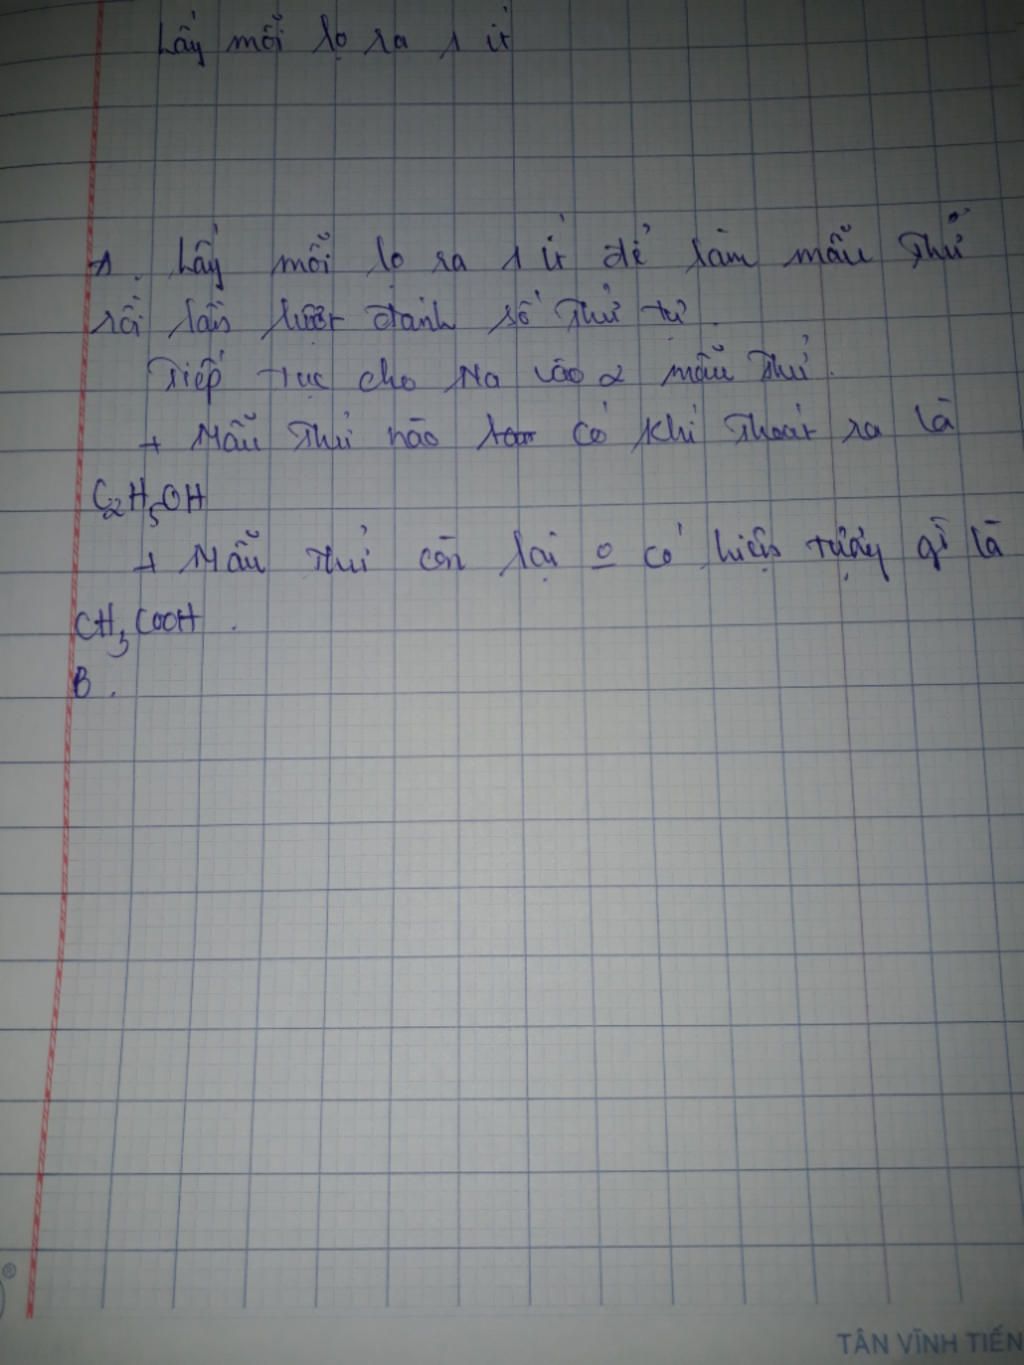 Lấy mỗi lọ ra 1 ít
A. Lấy mỗi lọ ra 1 ít để làm mẫu thử
rồi lần lượt đánh số thứ tự.
Tiếp tục cho Na vào 2 mẫu thử.
+ Mẫu thử nào có khí thoát ra là
C2H5OH
+ Mẫu thử còn lại 0 có hiện tượng gì là
CH3COOH.
B.
TÂN VĨNH TIẾN